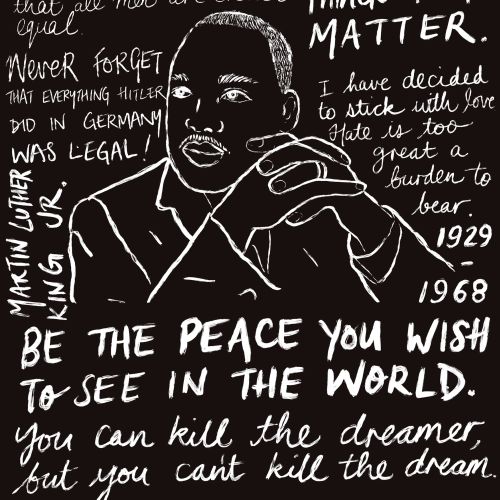 that all
equal.
THINGS
MATTER.
NEVER FORGET
THAT EVERYTHING HITLER
DID IN GERMANY
WAS LEGAL!
I have decided
to stick with love
Hate is too
great a
burden to
bear.
MARTIN LUTHER
KING JR.
1929
-
1968
BE THE PEACE YOU WISH
TO SEE IN THE WORLD.
You can kill the dreamer,
but you can't kill the dream.